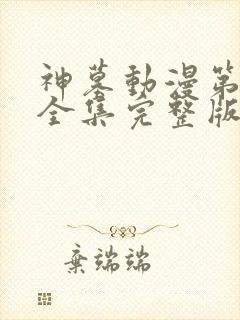 神墓動漫第
全集完整版
棄端端